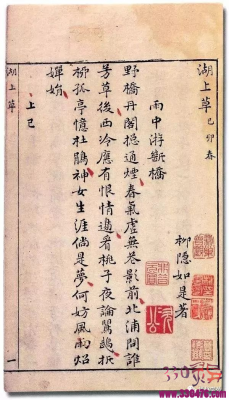 湖上草 己卯春
柳隱如是著
雨中游斷橋
野橋丹閣總通煙春氣虛無花影前北浦問誰
芳草後西泠應有恨情邊看桃子夜論鴛鴦折
柳孤亭憶杜鵑神女生涯倘是夢何妨風雨炤
嬋娟
上巳
湖上草
一
www.330476.com